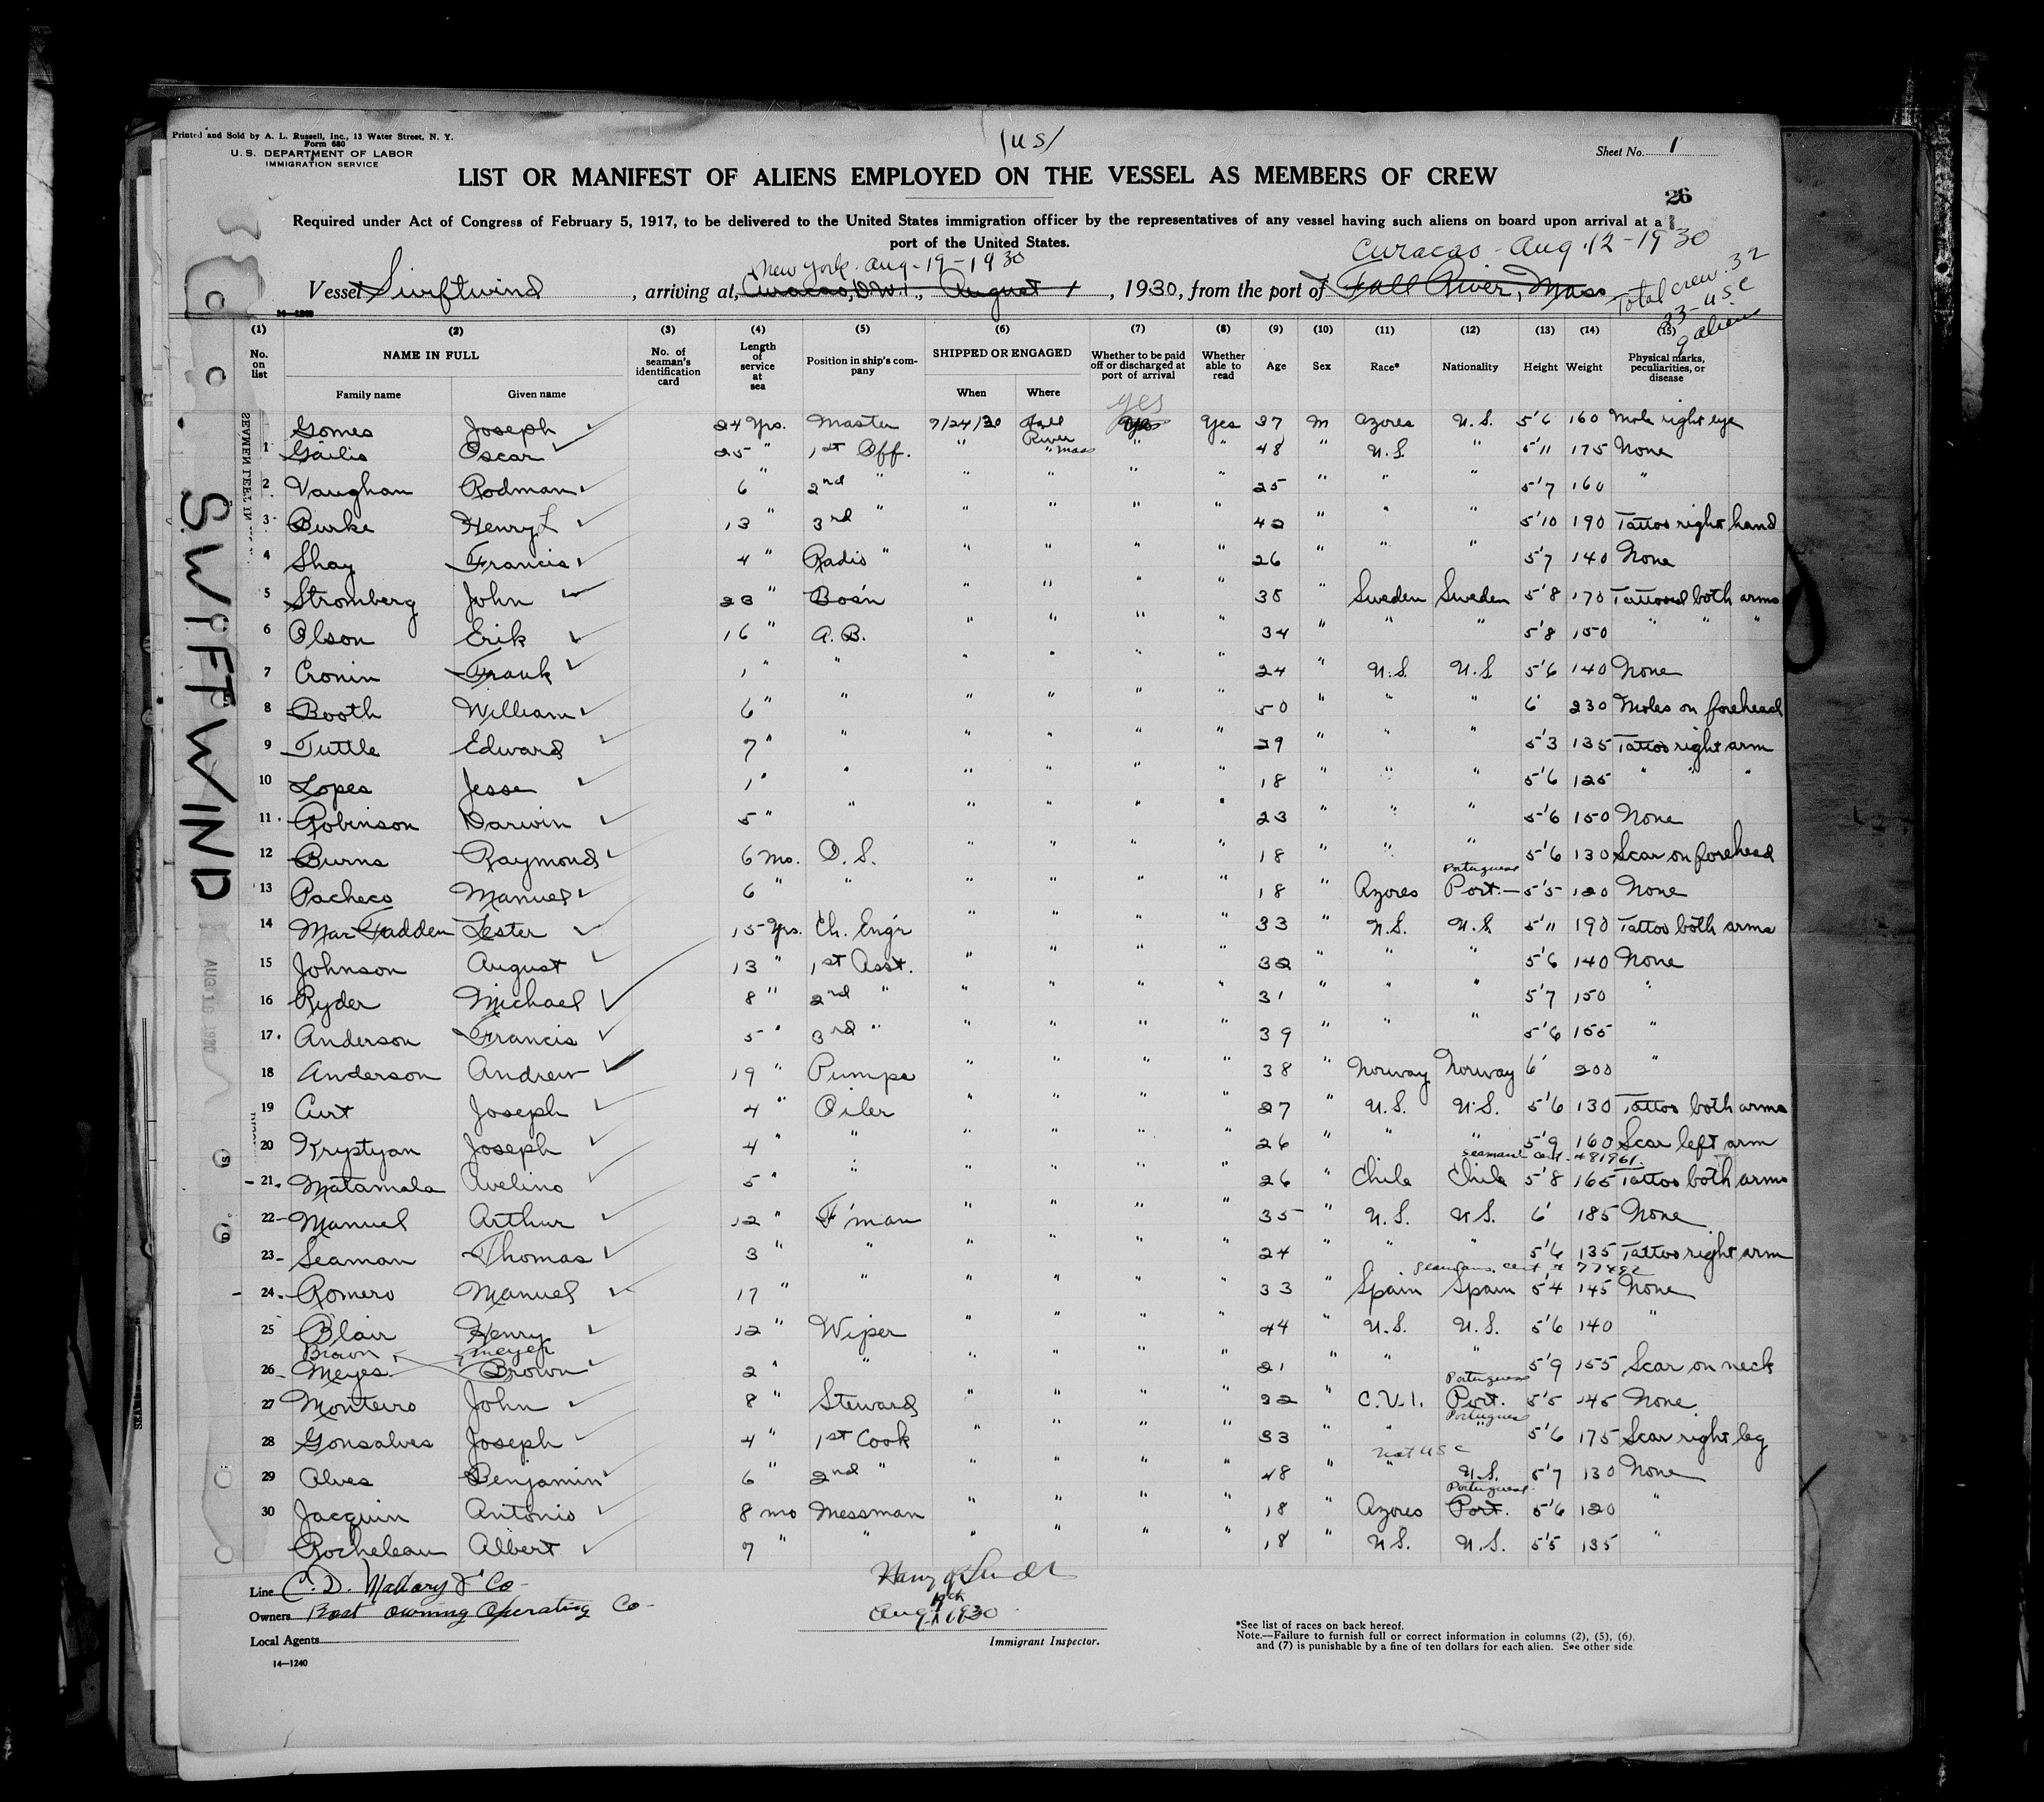 Printed and Sold by A. L. Russell, Inc., 13 Water Street, N. Y.
Form 680
U. S. DEPARTMENT OF LABOR
IMMIGRATION SERVICE
/us/
Sheet No. 1
LIST OR MANIFEST OF ALIENS EMPLOYED ON THE VESSEL AS MEMBERS OF CREW
26
Required under Act of Congress of February 5, 1917, to be delivered to the United States immigration officer by the representatives of any vessel having such aliens on board upon arrival at a
port of the United States.
New York - Aug - 19 - 1930 Curacao - Aug 12 - 1930
Vessel Swiftwind, arriving at, Curacao, D.W.I., August 1, 1930, from the port of Fall River, Mass
Total crew 32
23 - USC
9 aliens
14—1240
(1) (2) (3) (4) (5) (6) (7) (8) (9) (10) (11) (12) (13) (14) (15)
No. on list NAME IN FULL No. of seaman's identification card Length of service at sea Position in ship's company SHIPPED OR ENGAGED Whether to be paid off or discharged at port of arrival Whether able to read Age Sex Race* Nationality Height Weight Physical marks, peculiarities, or disease
Family name Given name When Where
yes
Gomes Joseph 24 Yrs. Master 7/24/30 Fall River Mass Yes Yes 37 m Azores U.S. 5'6 160 Mole right eye
1 Gailis Oscar 25 " 1st Off. " " " " 48 " U.S. " 5'11 175 None
2 Vaughan Rodman 6 " 2nd " " " " " 25 " " " 5'7 160 "
3 Burke Henry L 13 " 3rd " " " " " 42 " " " 5'10 190 Tattoo right hand
4 Shay Francis 4 " Radio " " " " " 26 " " " 5'7 140 None
5 Stromberg John 23 " Bos'n " " " " 38 " Sweden Sweden 5'8 170 Tattooed both arms
6 Olson Erik 16 " A.B. " " " " 34 " " " 5'8 150 " " "
7 Cronin Frank 1 " " " " " " 24 " U.S. U.S 5'6 140 None
8 Booth William 6 " " " " " " 50 " " " 6' 230 Moles on forehead
9 Tuttle Edward 7 " " " " " " 29 " " " 5'3 135 Tattoo right arm
10 Lopes Jesse 1 " " " " " " 18 " " " 5'6 125 " " "
11 Robinson Darwin 5 " " " " " " 23 " " " 5'6 150 None
12 Burns Raymond 6 mo. O.S. " " " " 18 " " " 5'6 130 Scar on forehead
Portuguese
13 Pacheco Manuel 6 " " " " " " 18 " Azores Port. 5'5 120 None
14 MacFadden Lester 15 Yrs. Ch. Eng'r " " " " 33 " U.S. U.S. 5'11 190 Tattoo both arms
15 Johnson August 13 " 1st Asst. " " " " 32 " " " 5'6 140 None
16 Ryder Michael 8 " 2nd " " " " " 31 " " " 5'7 150 "
17 Anderson Francis 5 " 3rd " " " " " 39 " " " 5'6 155 "
18 Anderson Andrew 19 " Pumps " " " " 38 " Norway Norway 6' 200 "
19 Curt Joseph 4 " Oiler " " " " 27 " U.S. U.S. 5'6 130 Tattoo both arms
20 Krystyan Joseph 4 " " " " " " 26 " " " 5'9 160 Scar left arm
Seaman's Cert. #81961
21 Matamala Avelino 5 " " " " " " 26 " Chile Chile 5'8 165 Tattoo both arms
22 Manuel Arthur 12 " F'man " " " " 35 " U.S. U.S. 6' 185 None
23 Seaman Thomas 3 " " " " " " 24 " " " 5'6 135 Tattoo right arm
Seamans Cert # 77492
24 Romero Manuel 17 " " " " " " 33 " Spain Spain 5'4 145 None
25 Blair Henry 12 " Wiper " " " " 44 " U.S. U.S. 5'6 140 "
Brown Meyer
26 Meyes Brown 2 " " " " " " 21 " " " 5'9 155 Scar on neck
Portuguese
27 Monteiro John 8 " Steward " " " " 32 " C.V.I. Port. 5'5 145 None
Portuguese
28 Gonsalves Joseph 4 " 1st Cook " " " " 33 " " " 5'6 175 Scar right leg
Nat USC
29 Alves Benjamin 6 " 2nd " " " " " 48 " " U.S. 5'7 130 None
Portuguese
30 Jacquin Antonio 8 mo Messman " " " " 18 " Azores Port. 5'6 120 "
Rocheleau Albert 7 " " " " " " 18 " U.S. U.S. 5'5 135 "
Line C. D. Mallory & Co
Owners Boat Owning Operating Co
Local Agents
Aug 19th 1930
Immigrant Inspector.
*See list of races on back hereof.
Note.—Failure to furnish full or correct information in columns (2), (5), (6),
and (7) is punishable by a fine of ten dollars for each alien. See other side
14—1240
S.W!FTWIND
AUG 10 1930